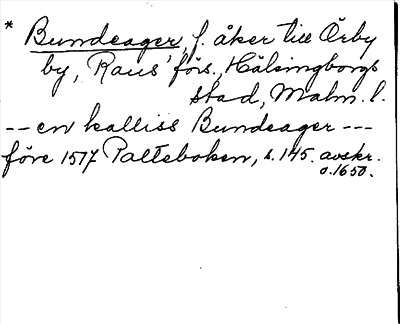 * Bundeager f. åker till Örby
by, Raus' förs., Hälsingborgs
stad, Malm. l.
-- en kalliss Bundeager ---
före 1517 Palteboken, s. 145. avskr.
o. 1650.